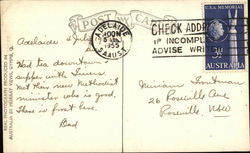 POST CARD
ADELAIDE
NOON
1955
S. AUST.
CHECK ADDRESS
IF INCOMPLETE
ADVISE WRITER
U.S.A. MEMORIAL
AUSTRALIA
Adelaide
Had tea downtown
supper with
Met their new Methodist
minister who is good.
There is frost here.
Dad
Miriam Troutman
26 Roseville Ave
Roseville, NSW